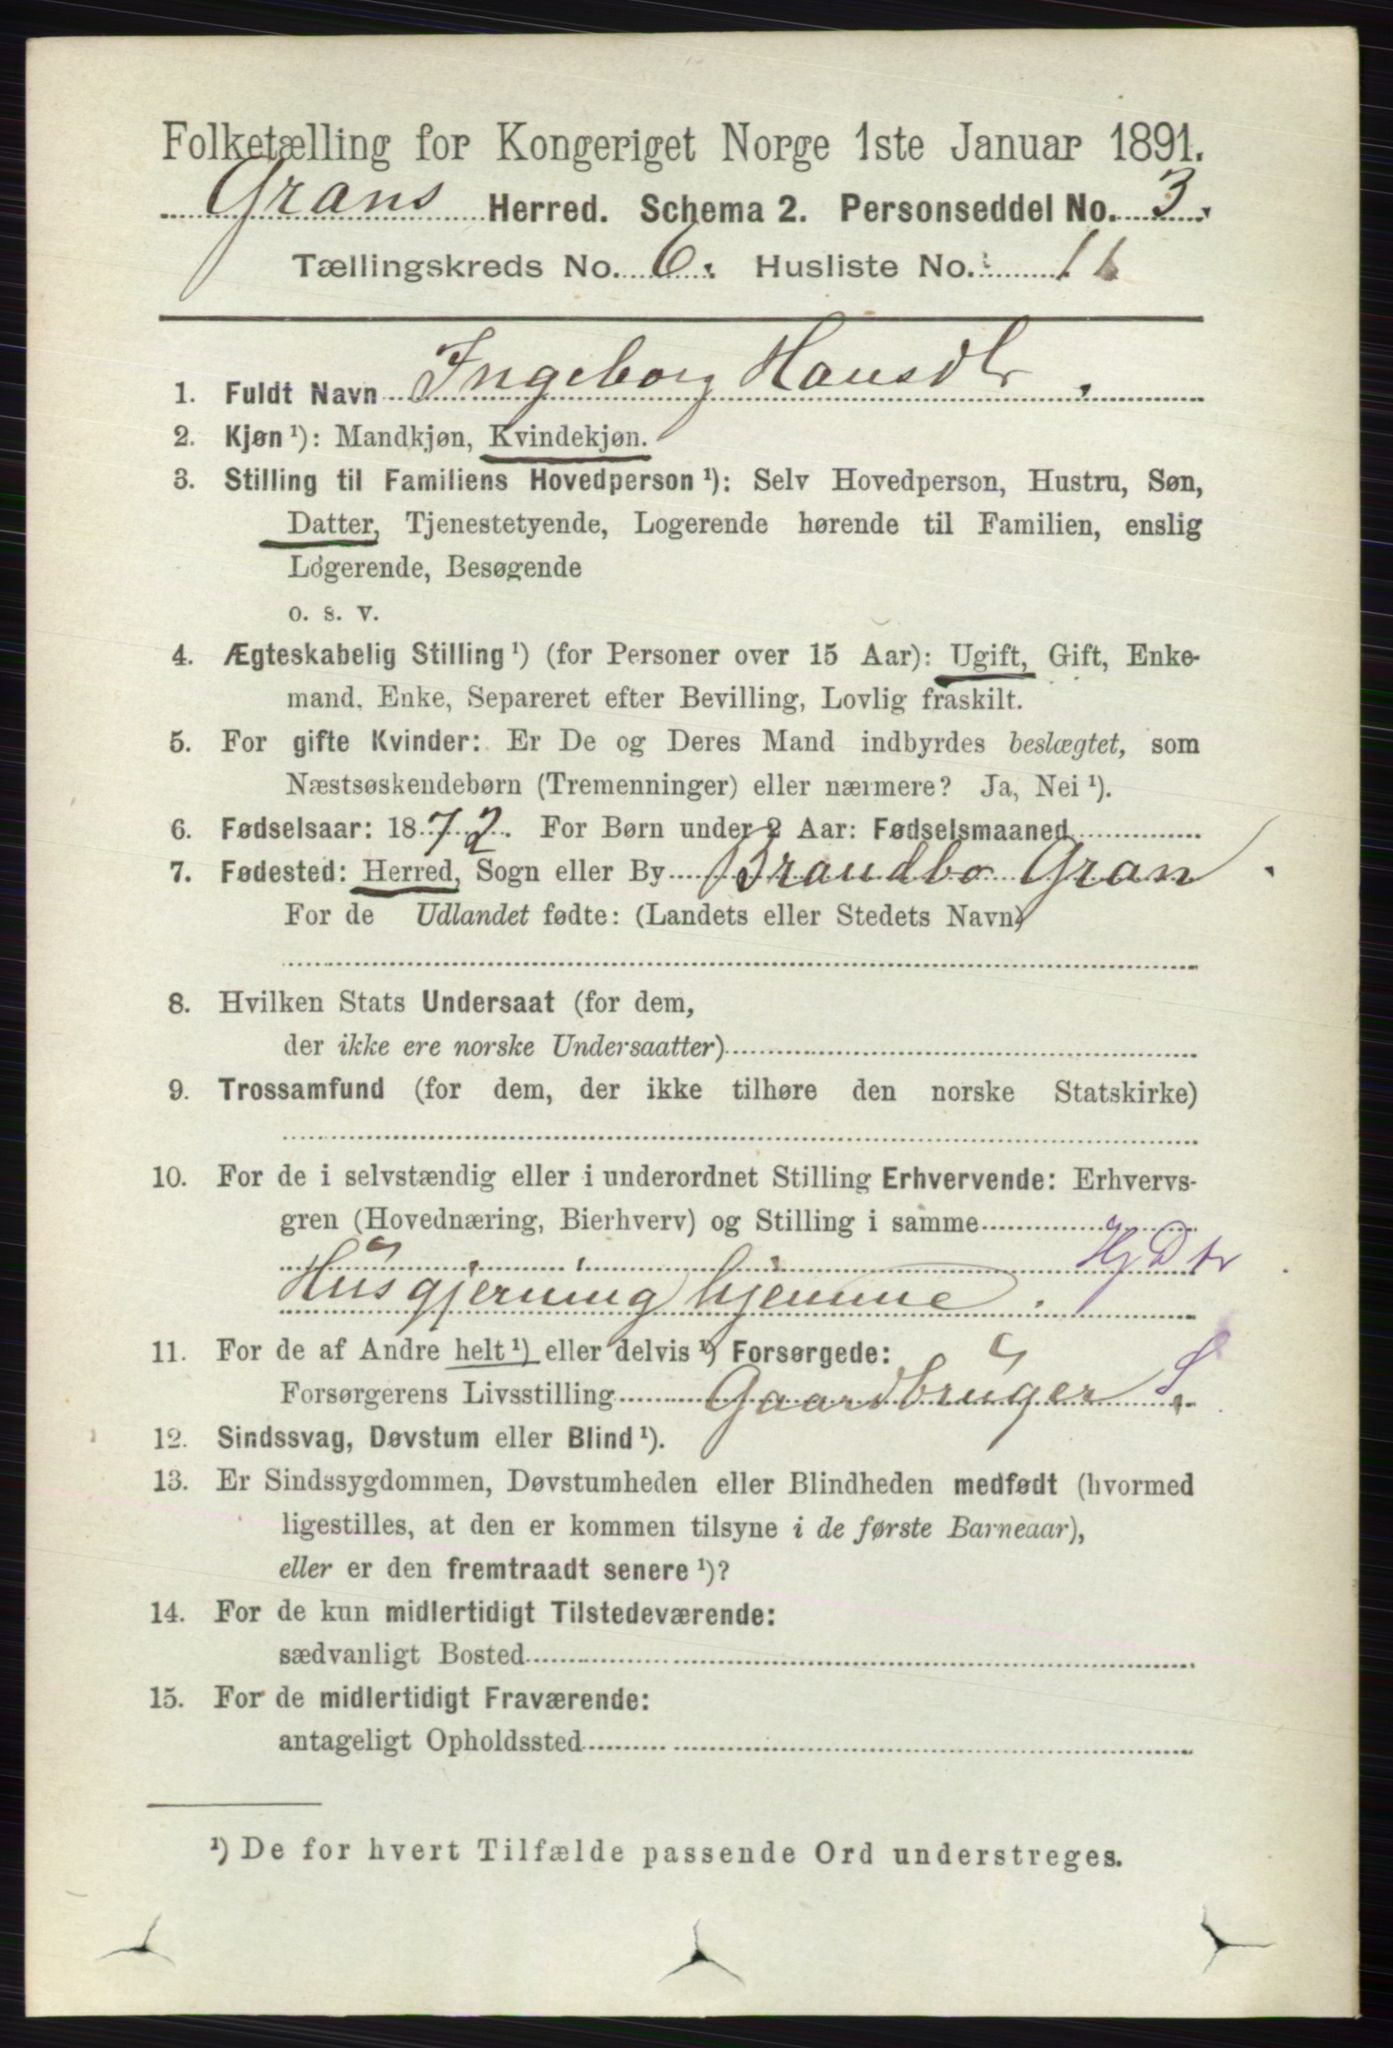 Folketælling for Kongeriget Norge 1ste Januar 1891.
Grans Herred. Schema 2. Personseddel No. 3.
Tællingskreds No. 6. Husliste No. 11
1. Fuldt Navn Ingeborg Hansdtr.
2. Kjøn ¹): Mandkjøn, Kvindekjøn.
3. Stilling til Familiens Hovedperson ¹): Selv Hovedperson, Hustru, Søn,
Datter, Tjenestetyende, Logerende hørende til Familien, enslig
Logerende, Besøgende
o. s. v.
4. Ægteskabelig Stilling ¹) (for Personer over 15 Aar): Ugift, Gift, Enke-
mand, Enke, Separeret efter Bevilling, Lovlig fraskilt.
5. For gifte Kvinder: Er De og Deres Mand indbyrdes beslægtet, som
Næstsøskendebørn (Tremenninger) eller nærmere? Ja, Nei ¹).
6. Fødselsaar: 1872. For Børn under 2 Aar: Fødselsmaaned
7. Fødested: Herred, Sogn eller By Brandbo Gran.
For de Udlandet fødte: (Landets eller Stedets Navn)
8. Hvilken Stats Undersaat (for dem,
der ikke ere norske Undersaatter)
9. Trossamfund (for dem, der ikke tilhøre den norske Statskirke)
10. For de i selvstændig eller i underordnet Stilling Erhvervende: Erhvervs-
gren (Hovednæring, Bierhverv) og Stilling i samme
Hj Dtr
Husgjerning hjemme.
11. For de af Andre helt ¹) eller delvis ¹) Forsørgede:
Forsørgerens Livsstilling Gaardbruger S.
12. Sindssvag, Døvstum eller Blind ¹).
13. Er Sindssygdommen, Døvstumheden eller Blindheden medfødt (hvormed
ligestilles, at den er kommen tilsyne i de første Barneaar),
eller er den fremtraadt senere ¹)?
14. For de kun midlertidigt Tilstedeværende:
sædvanligt Bosted
15. For de midlertidigt Fraværende:
antageligt Opholdssted
¹) De for hvert Tilfælde passende Ord understreges.